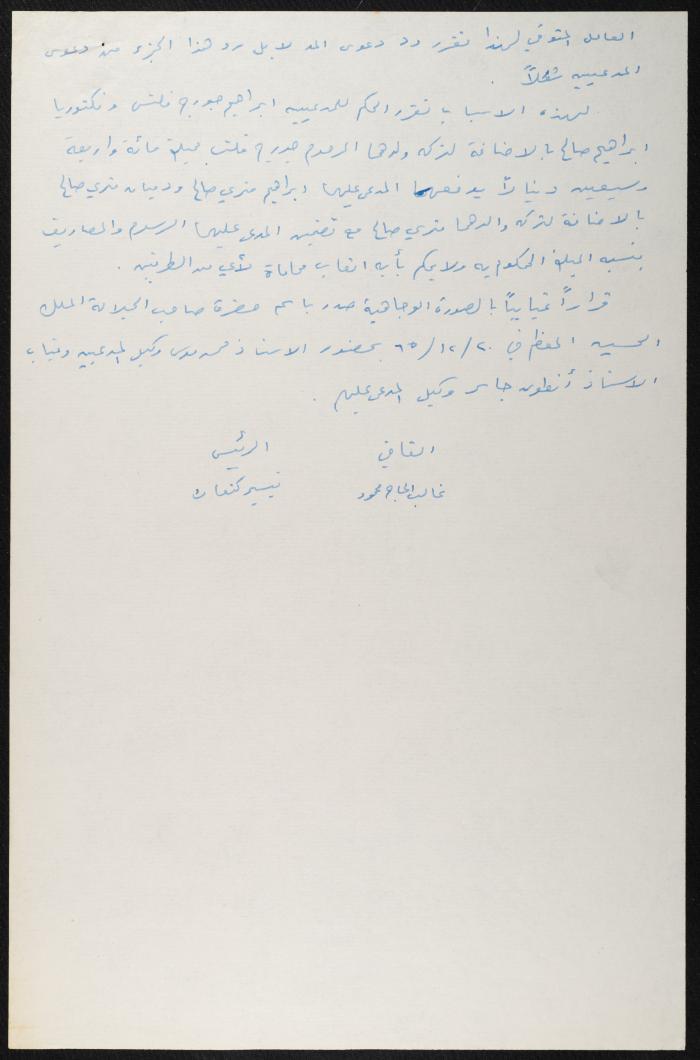 العامل المتوفي لهذا نقرر رد دعوى المد لا بل رد هذا الجزء من دعوى
المدعيين شكلاً .
لهذه الاسباب نقرر الحكم للمدعيين ابراهيم جورج فلتس وفكتوريا
ابراهيم صالح بالاضافة لتركة ولدهما المرحوم جورج فلتس بمبلغ مائة واربعة
وسبعين ديناراً يدفعها المدعى عليهما ابراهيم متري صالح وديبان متري صالح
بالاضافة لتركة والدهما متري صالح مع تضمين المدعى عليهما الرسوم والمصاريف
بنسبة المبلغ المحكوم به ولا يحكم بأية اتعاب محاماة لأي من الطرفين .
قراراً غيابياً بالصورة الوجاهية صدر باسم حضرة صاحب الجلالة الملك
الحسين المعظم في ٢٠/١٢/٦٥ بحضور الاستاذ وكيل المدعيين وغياب
الاستاذ أنطون جاسر وكيل المدعى عليهم .
القاضي الرئيس
غالب الحاج محمود تيسير كنعان